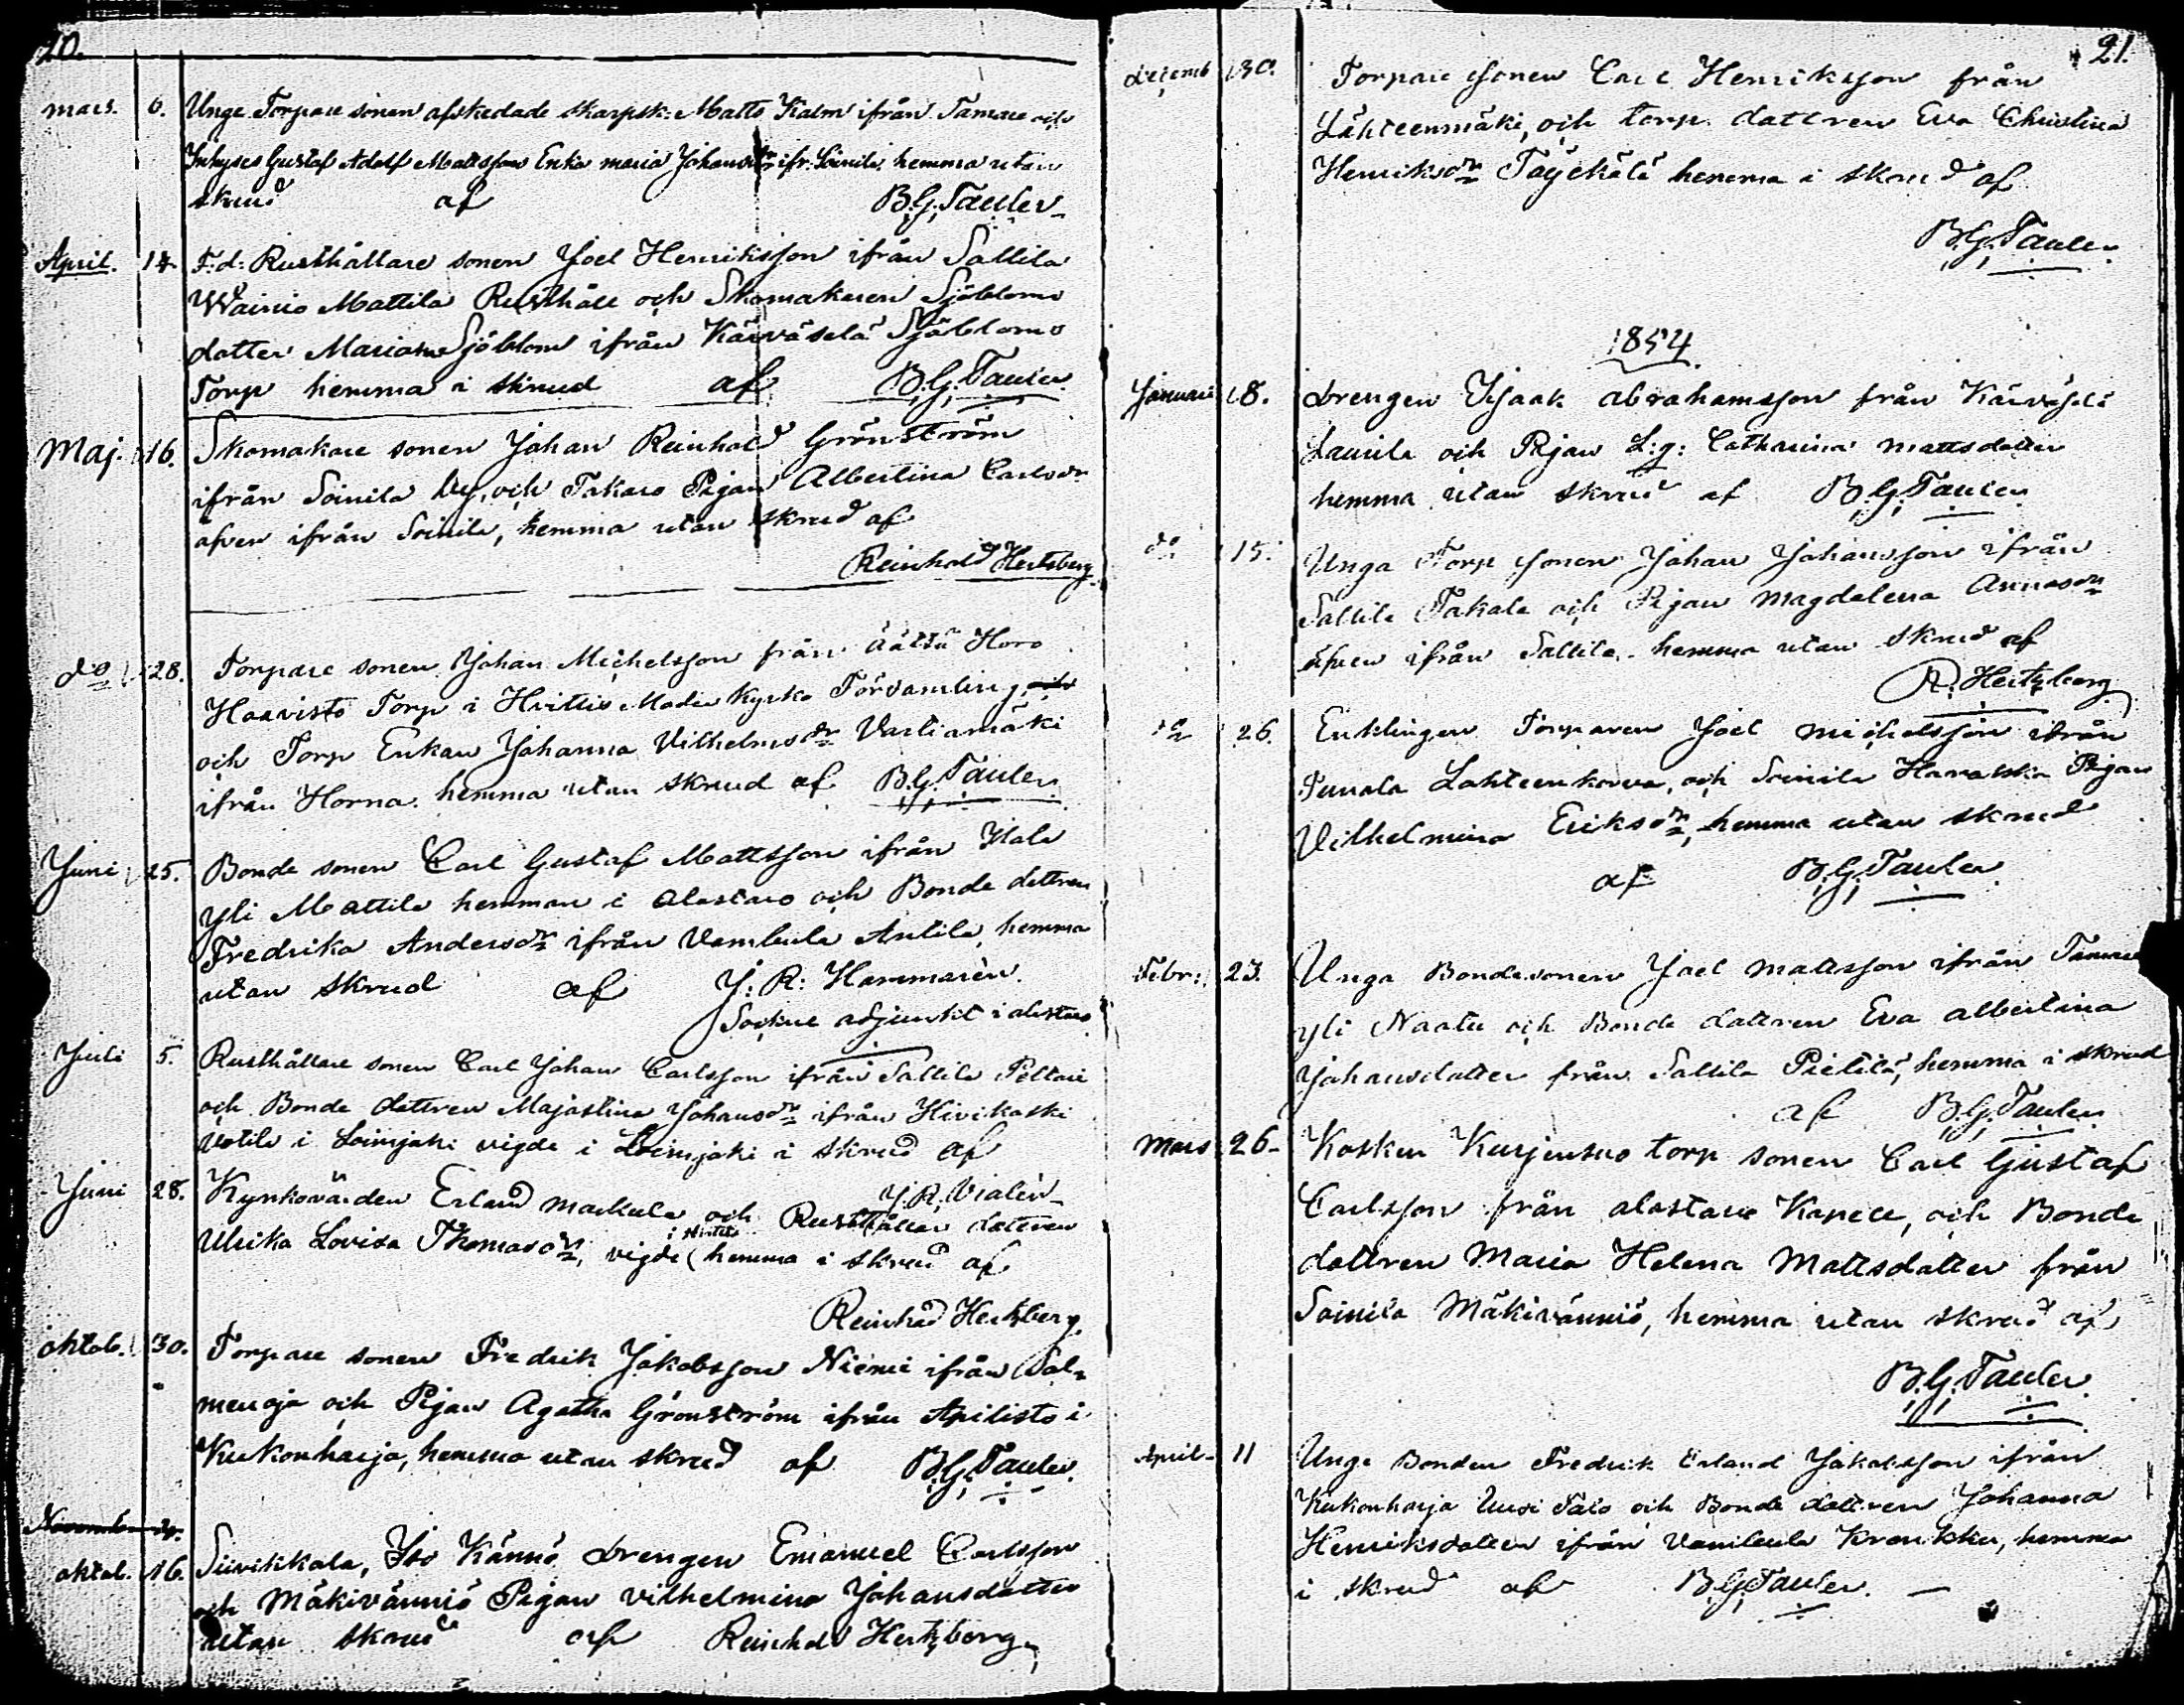 20.
mars. 6. Unge Torpare sonen afskedade skarpsk: Matts Kalm ifrån Tamare och
Inhyses Gustaf Adolf Mattssons Enka maria Johansdr ifr. Soinila, hemma utan
skrud af B.G. Tauler
April. 14 F.d: Rusthållare sonen Joel Henriksson ifrån Sallila
Wainio Mattila Rusthåll och Skomakaren Sjöbloms
dotter Mariana Sjöblom ifrån Kärväselä Sjöbloms
Torp hemma i skrud af B.G. Tauler
Maj. 16. Skomakare sonen Johan Reinhold Grönström
ifrån Soinila by, och Takaro Pigan Albertina Carlsdr
äfven ifrån Soinila, hemma utan skrud af
Reinhold Hertzberg
do 28. Torpare sonen Johan Michelsson från Äältä Horo
Haavisto Torp i Hvittis Moder Kyrko Församling,
och Torp Enkan Johanna Vilhelmsdr Vartiamäki
ifrån Horna. hemma utan skrud af B.G. Tauler
Juni 25. Bonde sonen Carl Gustaf Mattsson ifrån
Yli Mattila hemman i Alastaro och Bonde dottren
Fredrika Andersdr ifrån Vambula Antila, hemma
utan skrud af J: R: Hammarén
Sockne adjunkt i alastaro
Juli 5. Rusthållare sonen Carl Johan Carlsson ifrån Sallila Peltari
och Bonde dottren Majastina Johansdr ifrån Hivikoski
i Loimjoki vigde i Loimjoki i skrud af
J.R. Vialén
Juni 28. Erland markula och Rusthållar dottren
Ulrika Lovisa Thomasdr, vigde (hemma i skrud af
Reinhold Hertzberg
oktob. 30. Torpare sonen Fredrik Jakobsson Niemi ifrån Sal-
menoja och Pigan Agatha Grönström ifrån Apilisto i
Kukonharja, hemma utan skrud af B.G. Tauler.
Novemb
oktob. 16. Suvikkala, Iso Kännö drengen Emanuel Carlsson
och Mäkivänniö Pigan Vilhelmina Johansdotter
utan skrud af Reinhold Hertzberg
21.
decemb 30. Torpare sonen Carl Henriksson från
Lähteenmäki, och torp. dottren Eva Christina
Henriksdr hemma i skrud af
B.G. Tauler
1854.
Januari 8. drengen Isaak abrahamsson från Kärväselä
Laurila och Pigan L:g: Catharina mattsdotter
hemma utan skrud af B.G. Tauler
do 15. Unga Torp sonen Johan Johansson ifrån
Sallila Takala och Pigan Magdalena
äfven ifrån Sallila. hemma utan skrud af
R. Hertzberg
do 26. Enklingen Torparen Joel michelsson ifrån
Lahteenkorva, och Soinila Pigan
Vilhelmina Eriksdr, hemma utan skrud
af B.G. Tauler
Febr: 23. Unga Bondesonen Joel mattsson ifrån
Yli Naatu och Bonde dottren Eva albertina
Johansdotter från Sallila Pietilä, hemma i skrud
af B.G. Tauler
Mars 26. Kosken Kurjensuo torp sonen Carl Gustaf
Carlsson från alastaro Kapell, och Bonde
dottren Maria Helena Mattsdotter från
Soinila Mäkivänniö, hemma utan skrud af
B.G. Tauler
April 11 Unge Bonden Fredrik Erland Jakobsson ifrån
Kukonharja Uusi Talo och Bonde dottren Johanna
Henriksdotter ifrån Vambula Kroukku, hemma
i skrud af B.G. Tauler.